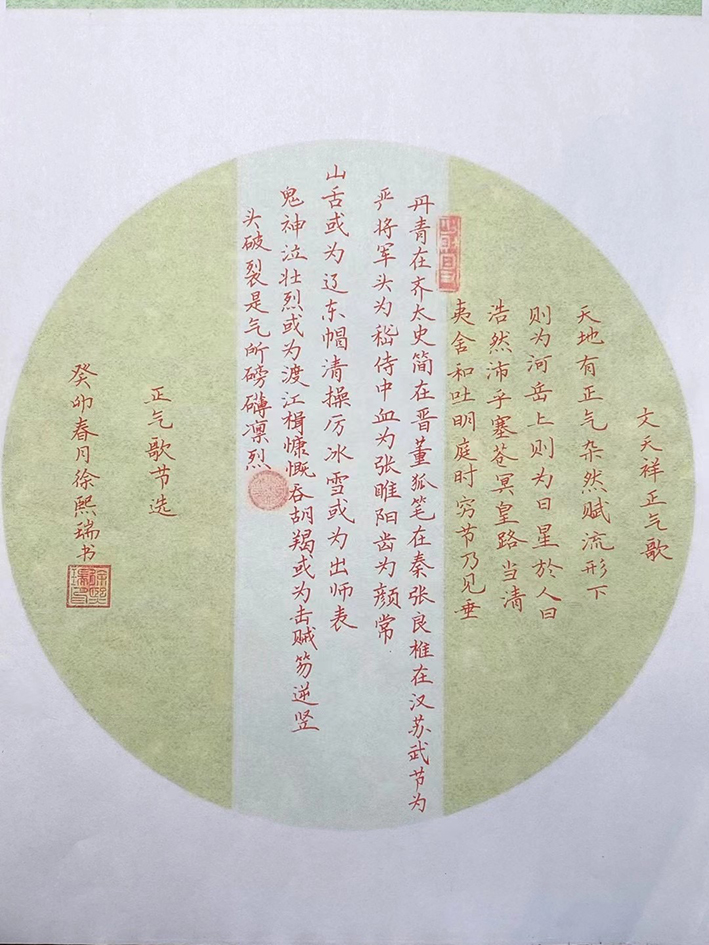 文天祥正气歌
天地有正气杂然赋流形下
则为河岳上则为日星於人曰
浩然沛乎塞苍冥皇路当清
夷含和吐明庭时穷节乃见垂
丹青在齐太史简在晋董狐笔在秦张良椎在汉苏武节为
严将军头为嵇侍中血为张睢阳齿为颜常
山舌或为辽东帽清操厉冰雪或为出师表
鬼神泣壮烈或为渡江楫慷慨吞胡羯或为击贼笏逆竖
头破裂是气所磅礴凛烈
正气歌节选
癸卯春月徐熙瑞书